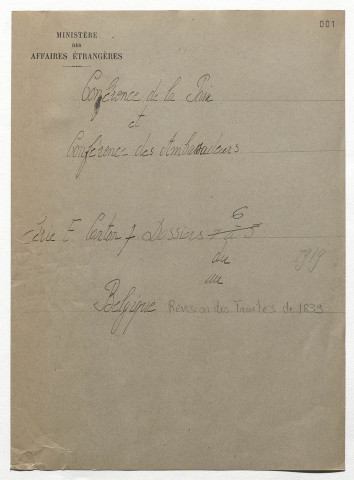 001
MINISTÈRE
DES
AFFAIRES ÉTRANGÈRES
Conférence de la Paix
et
Conférence des Ambassadeurs
Série E Carton f Dossiers
6
au
1919
Belgique Révision des Traités de 1839